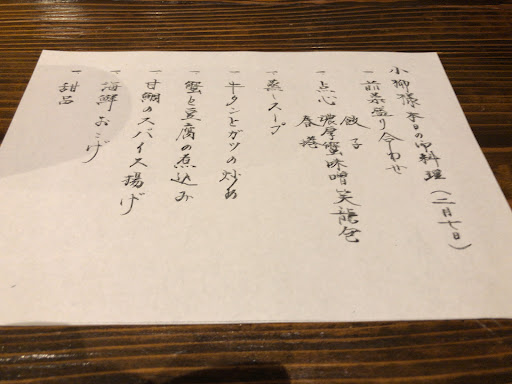 小柳様 本日の御料理(二月十日)
一 前菜盛り合わせ
一 点心 餃子
濃厚蟹味噌笑龍包
春巻
一 蒸しスープ
一 牛タンとガツの炒め
一 蟹と豆腐の煮込み
一 甘鯛のスパイス揚げ
一 海鮮おこげ
一 甜品